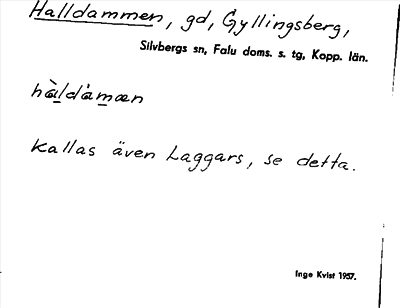 Halldammen, gd, Gyllingsberg,
Silvbergs sn, Falu doms. s. tg, Kopp. län.
hàldåmæn
Kallas även Laggars, se detta.
Inge Kvist 1957.